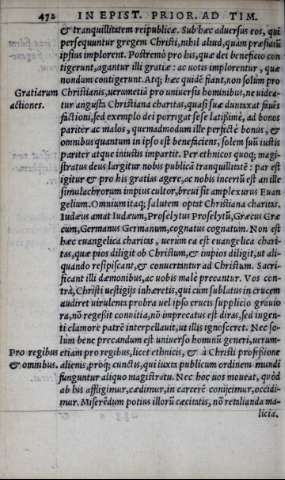 472 IN EPIST. PRIOR. AD TIM.
& tranquillitatem reipublicæ. Sub hæc aduersus eos, qui
persequuntur gregem Christi, nihil aliud, quam præsidiũ
ipsius implorent. Postremò pro his, quæ dei beneficio con
tigerunt, agantur illi gratiæ: ac uotis implorentur, quæ
nondum contigerunt. Atq; hæc quidẽ fiant, non solum pro
Gratiarum Christianis, uerumetiã pro uniuersis hominibus, ne uidea-
actiones. tur angusta Christiana charitas, quasi suæ duntaxat fiués
factioni, sed exemplo dei porrigat sese latissimè, ad bonos
pariter ac malos, quemadmodum ille perfectè bonus, &
omnibus quantum in ipso est beneficiens, solem suũ iustis
pariter atque iniustis impartit. Per ethnicos quoq; magi-
stratus deus largitur nobis publicã tranquillitatẽ: par est
igitur & pro his gratias agere, ac nobis incertũ est an ille
simulachrorum impius cultor, breui sit amplexurus Euan
gelium. Omnium itaq; salutem optat Christiana charitas.
Iudæus amat Iudæum, Proselytus Proselytũ, Græcus Græ
cum, Germanus Germanum, cognatus cognatum. Non est
hæc euangelica charitas, uerum ea est euangelica chari-
tas, quæ pios diligit ob Christum, & impios diligit, ut ali-
quando resipiscant, & conuertantur ad Christum. Sacri-
ficant illi dæmonibus, ac uobis malè precantur. Vos con
trà, Christi uestigijs inhæretis, qui cum sublatus in crucem
audiret uirulenta probra uel ipso crucis supplicio grauio
ra, nõ regessit conuitia, nõ imprecatus est diras, sed ingen
ti clamore patrẽ interpellauit, ut illis ignosceret. Nec so-
lum bene precandum est uniuerso hominũ generi, uerum-
Pro regibus etiam pro regibus, licet ethnicis, & à Christi professione
& omnibus. alienis, próq; cunctis, qui iuxta publicum ordinem mundi
funguntur aliquo magistratu. Nec hoc uos moueat, quòd
ab his affligimur, cædimur, in carcerẽ conijcimur, occidi-
mur. Miserẽdum potius illorũ cæcitatis, nõ retalianda ma
licia.